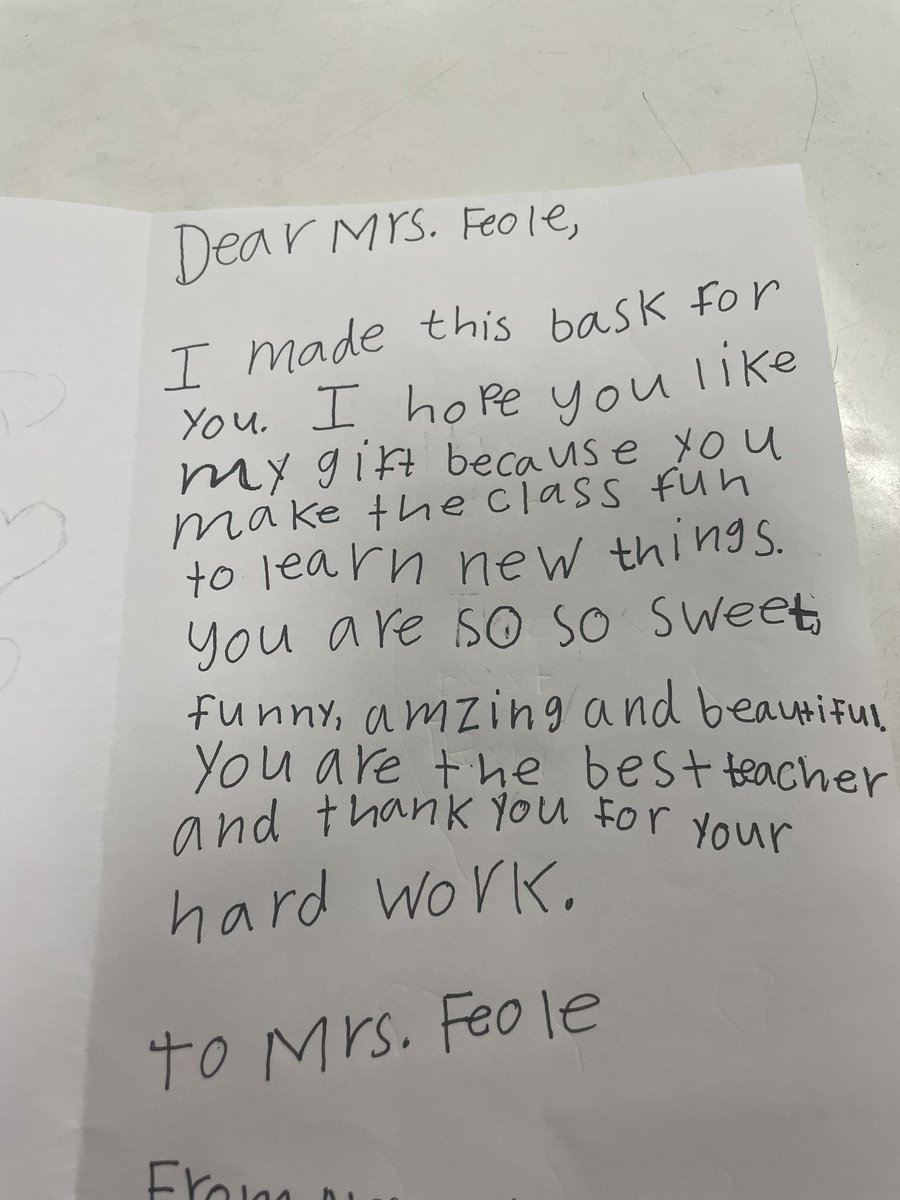 Dear Mrs. Feole,
I made this bask for
you. I hope you like
my gift because you
make the class fun
to learn new things.
you are so so sweet,
funny, amzing and beautiful.
You are the best teacher
and thank you for your
hard work.
to Mrs. Feole
From